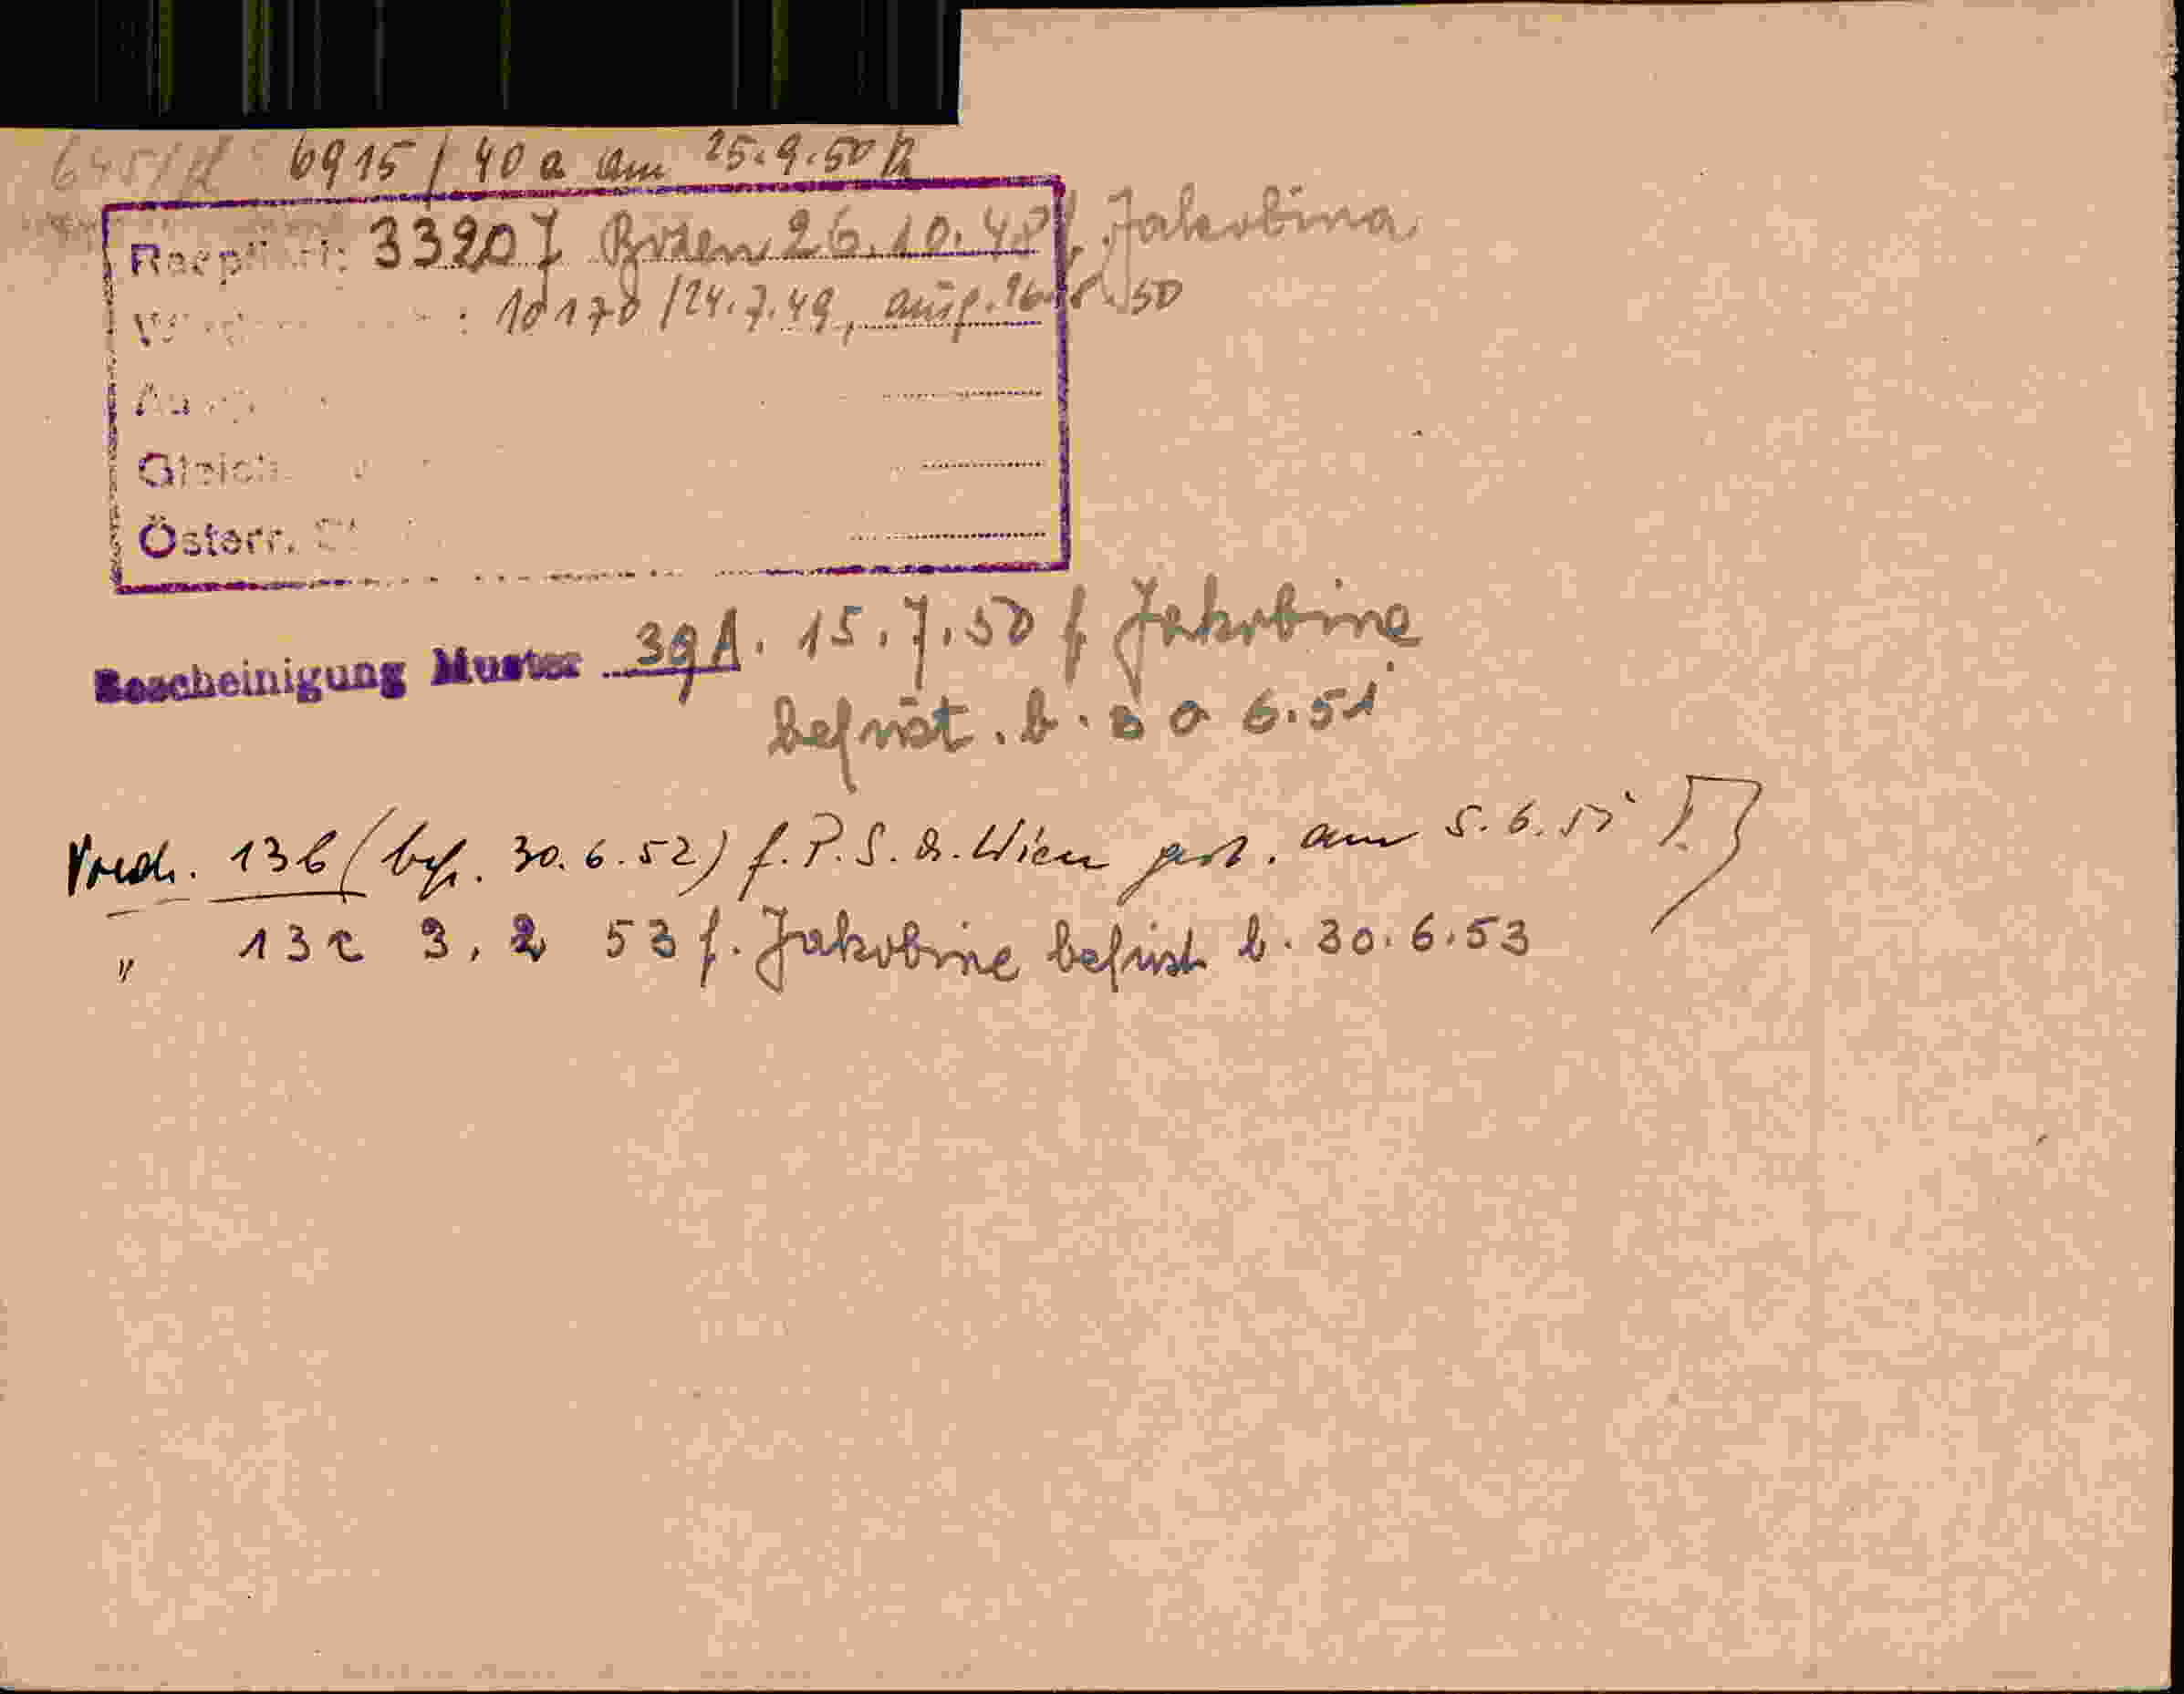 6915 / 40 a am 25.9.50
33207 Bozen 26.10.48 f. Jakobina
: 10170 / 24.7.49, ausg. 26.8.50
Gleich
Österr.
Bescheinigung Muster 39A. 15.7.50 f Jakobine
befrist. b. 30 6.51
Vordr. 13b (bef. 30.6.52) f. P.S.A. Wien am 5.6.51
" 13c 3.2 53 f. Jakobine befrist b. 30.6.53